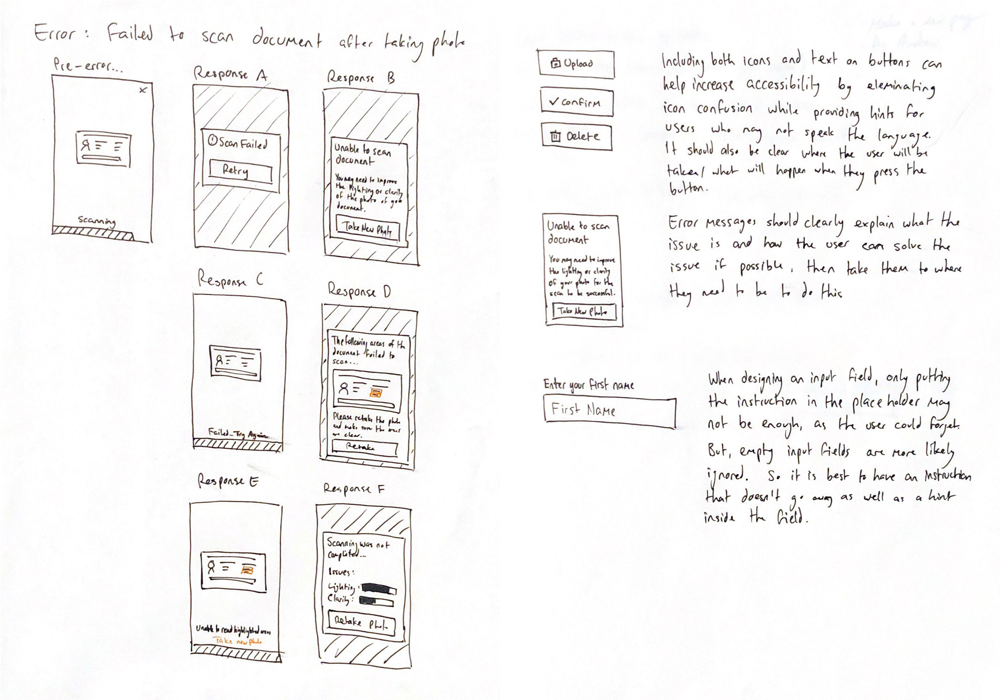 Error: Failed to scan document after taking photo
Pre-error...
x
Scanning
Response A
Scan Failed
Retry
Response B
Unable to scan
document
You may need to improve
the lighting or clarity
of this photo of your
document.
Take New Photo
Response C
Failed...Try Again...
Response D
The following areas of the
document failed to
scan...
Please retake the photo
and make sure the areas
are clear.
Retake
Response E
Unable to read highlighted areas
Take new photo
Response F
Scanning was not
completed...
Issues:
Lighting:
Clarity:
Retake Photo
Upload
Confirm
Delete
Including both icons and text on buttons can
help increase accessibility by eleminating
icon confusion while providing hints for
users who may not speak the language.
It should also be clear where the user will be
taken/ what will happen when they press the
button.
Unable to scan
document
You may need to improve
the lighting or clarity
of your photo for the
scan to be successful.
Take New Photo
Error messages should clearly explain what the
issue is and how the user can solve the
issue if possible, then take them to where
they need to be to do this
Enter your first name
First Name
When designing an input field, only putting
the instruction in the place holder may
not be enough, as the user could forget.
But, empty input fields are more likely
ignored. So it is best to have an Instruction
that doesn't go away as well as a hint
inside the field.